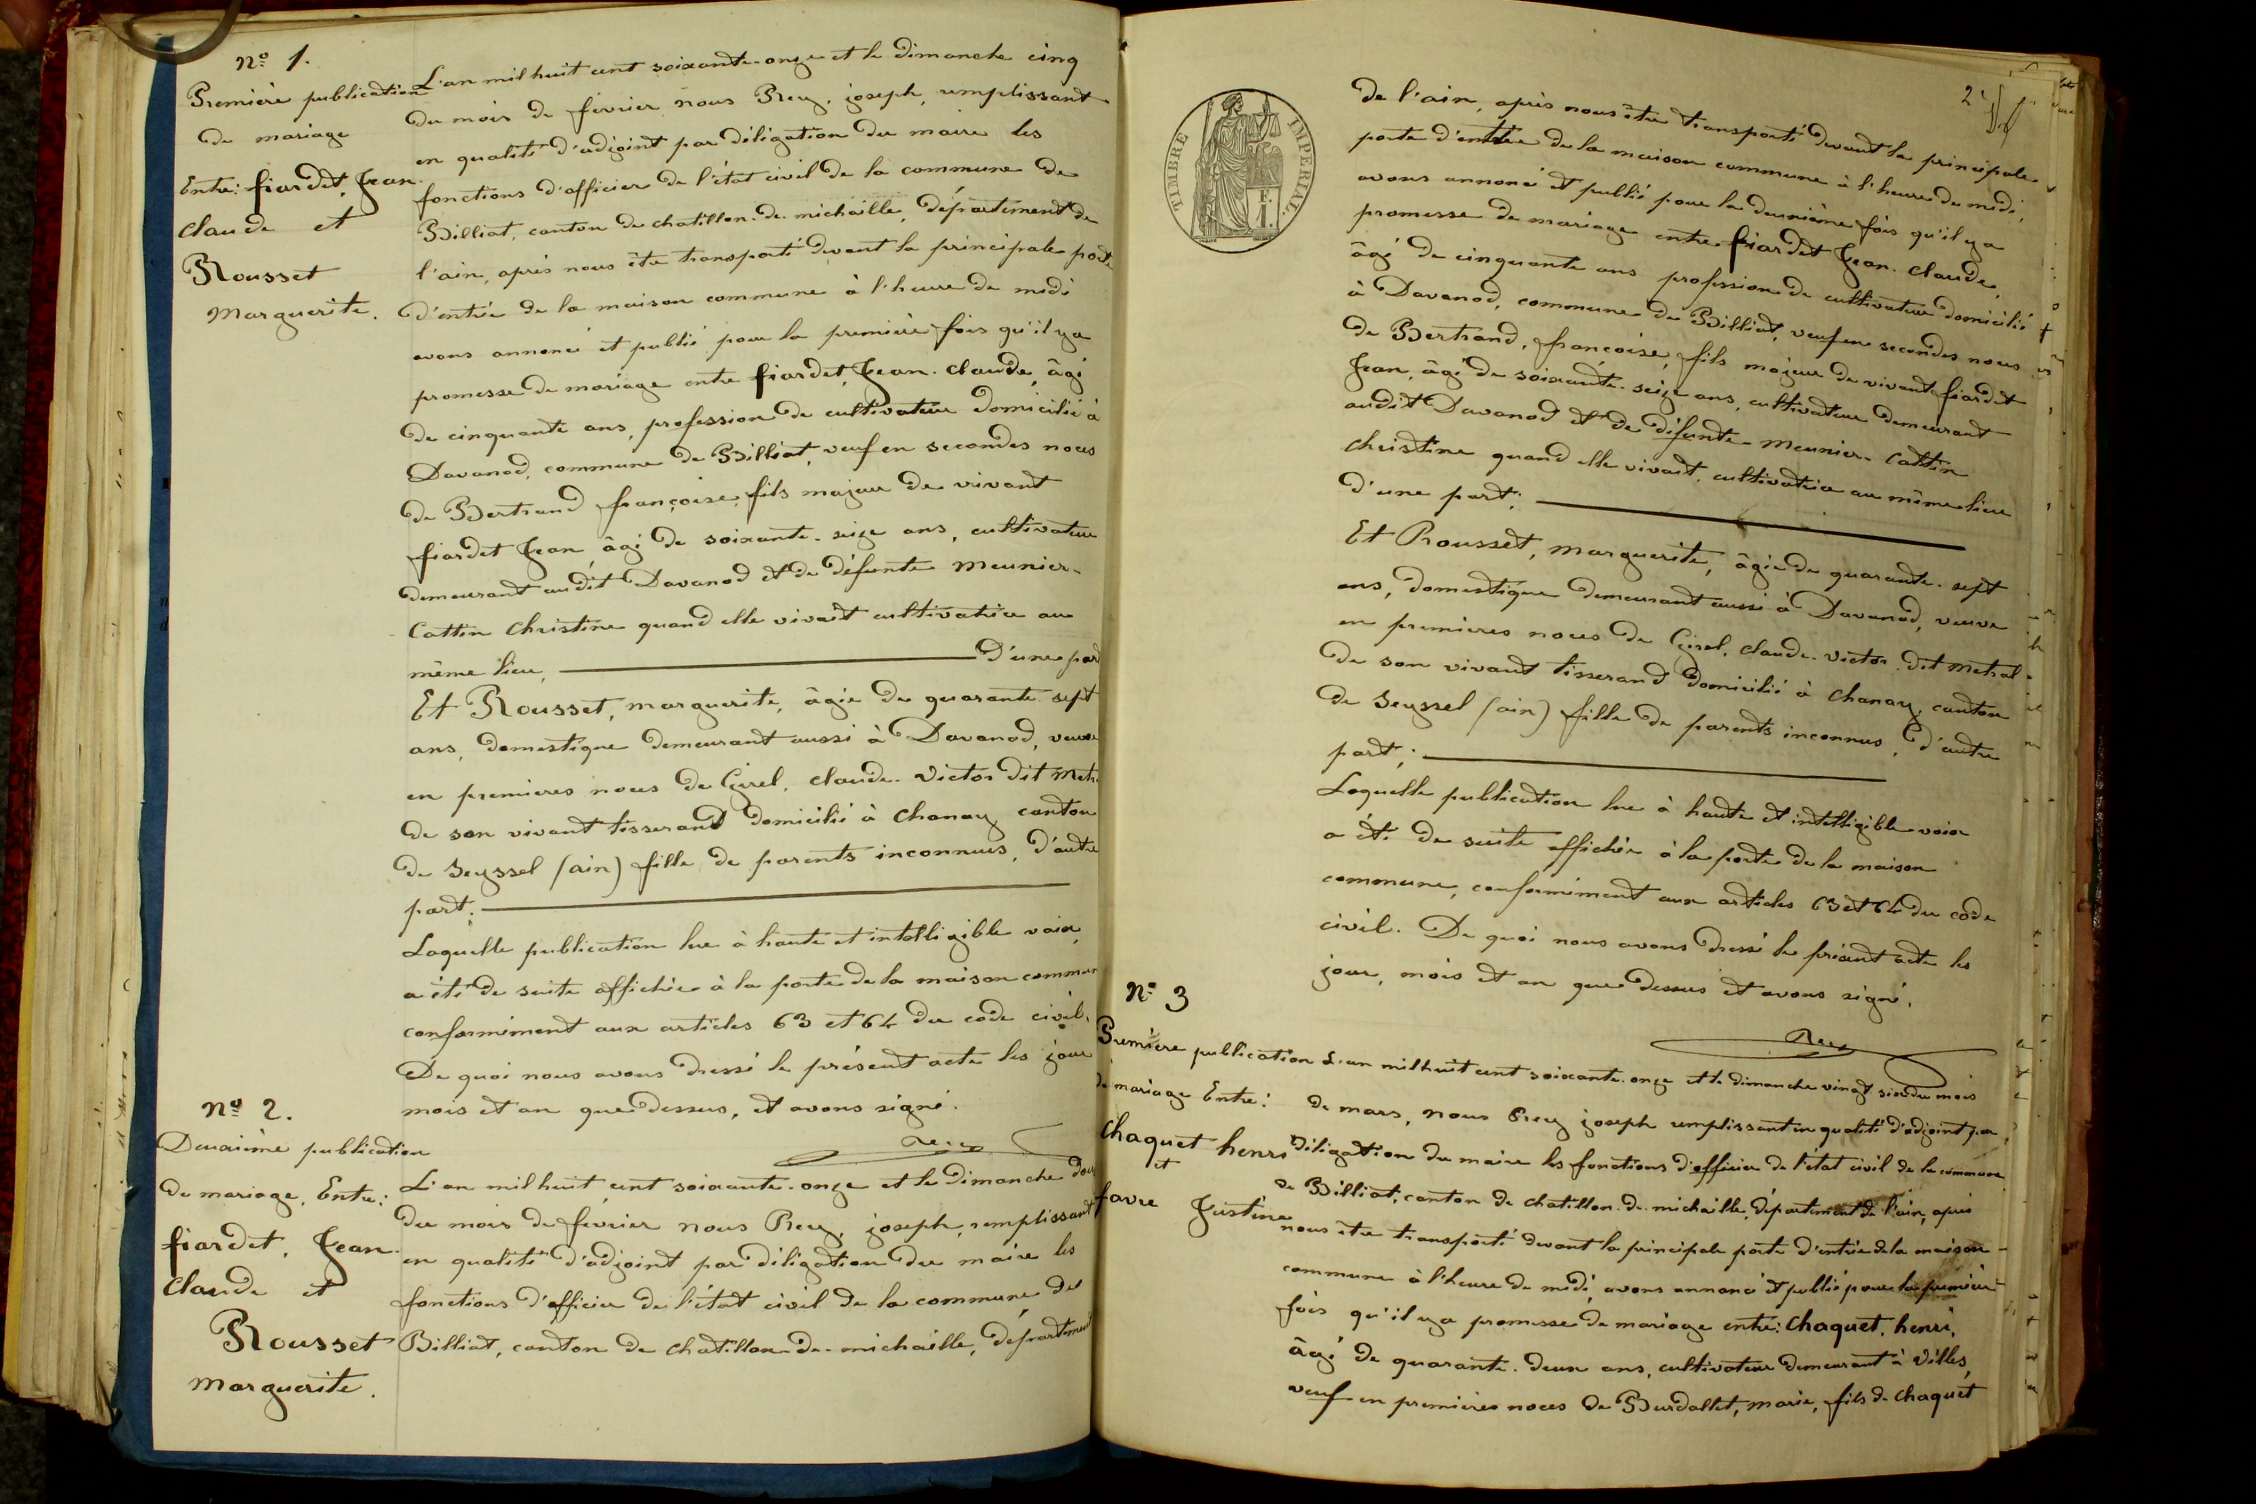 Nº 1.
Première publication
de mariage
Entre: fiardet, Jean.
Claude et
Rousset
Marguerite.
L'an mil huit cent soixante-onze et le Dimanche cinq
du mois de février nous Rey, joseph, remplissant
en qualité d'adjoint par délégation du maire les
fonctions d'officier de l'état civil de la commune de
Billiat, canton de chatillon-de-michaille, département de
l'ain, après nous être transporté devant la principale porte
d'entrée de la maison commune à l'heure de midi
avons annoncé et publié pour la première fois qu'il y a
promesse de mariage entre fiardet, Jean-Claude, âgé
de cinquante ans, profession de cultivateur domicilié à
Davanod, commune de Billiat, veuf en secondes noces
de Bertrand françoise, fils majeur de vivant
fiardet Jean âgé de soixante-seize ans, cultivateur
demeurant audit Davanod et de défunte Meunier-
Cattin Christine quand elle vivait cultivatrice au
même lieu, D'une part
Et Rousset, marguerite, âgée de quarante sept
ans, domestique demeurant aussi à Davanod, veuve
en premières noces de Girel, claude-Victor dit Met
de son vivant tisserand domicilié à Chanay canton
de Seyssel (ain) fille de parents inconnus, d'autre
part;
Laquelle publication lue à haute et intelligible voix,
a été de suite affichée à la porte de la maison commun
conformément aux articles 63 et 64 du code civil.
De quoi nous avons dressé le présent acte les jour
mois et an que dessus, et avons signé.
Rey
Nº 2.
Deuxième publication
de mariage, Entre:
fiardet, Jean-
Claude et
Rousset
Marguerite.
L'an mil huit cent soixante-onze et le Dimanche douz
du mois de février nous Rey, joseph, remplissant
en qualité d'adjoint par délégation du maire les
fonctions d'officier de l'état civil de la commune de
Billiat, canton de chatillon-de-michaille, département
2
TIMBRE IMPÉRIAL.
E. I.
de l'ain, après nous être transporté devant la principale
porte d'entrée de la maison commune à l'heure de midi,
avons annoncé et publié pour la deuxième fois qu'il y a
promesse de mariage entre fiardet Jean-Claude,
âgé de cinquante ans profession de cultivateur domicilié
à Davanod, commune de Billiat, veuf en secondes noces
de Bertrand, françoise, fils majeur de vivant fiardet
Jean, âgé de soixante-seize ans, cultivateur demeurant
audit Davanod et de défunte Meunier-Cattin
Christine quand elle vivait, cultivatrice au même lieu
d'une part;
Et Rousset, Marguerite, âgée de quarante-sept
ans, domestique demeurant aussi à Davanod, veuve
en premières noces de Girel, claude-Victor dit Metral
de son vivant tisserand domicilié à Chanay, canton
de Seyssel (ain) fille de parents inconnus, d'autre
part;
Laquelle publication lue à haute et intelligible voix
a été de suite affichée à la porte de la maison
commune, conformément aux articles 63 et 64 du code
civil. De quoi nous avons dressé le présent acte les
jour, mois et an que dessus et avons signé.
Rey
Nº 3
Première publication
de mariage Entre:
Chaquet henri
et
favre Justine
L'an mil huit cent soixante-onze et le dimanche vingt six du mois
de mars, nous Rey joseph remplissant en qualité d'adjoint par
délégation du maire les fonctions d'officier de l'état civil de la commune
de Billiat, canton de chatillon-de-michaille, département de l'ain, après
nous être transporté devant la principale porte d'entrée de la maison
commune à l'heure de midi, avons annoncé et publié pour la première
fois qu'il y a promesse de mariage entre: Chaquet, henri,
âgé de quarante-deux ans, cultivateur demeurant à Villes,
veuf en premières noces de Burdallet, marie, fils de chaquet